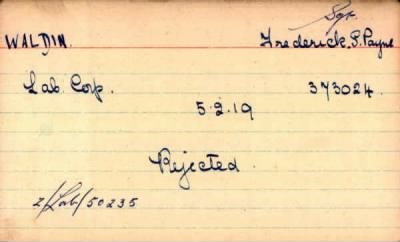 Sgt.
WALDIN. Frederick. P. Payne
Lab. Corp. 373024.
5.2.19
Rejected.
2/Lab/50235